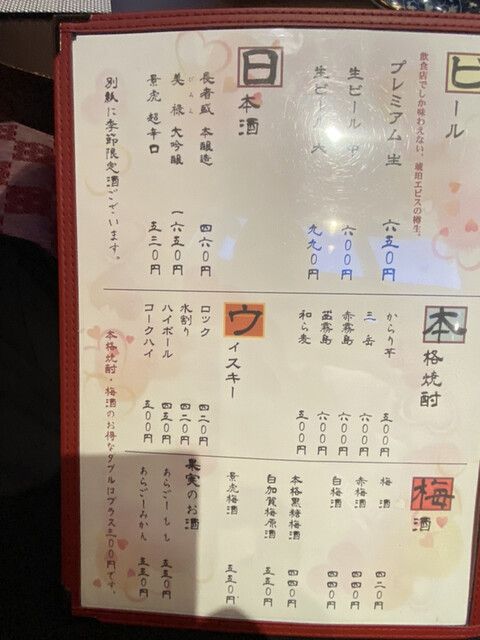 ビール
飲食店でしか味わえない。琥珀ヱビスの樽生。
プレミアム生 六五〇円
生ビール 中 六〇〇円
生ビール 大 九九〇円
日本酒
長者盛 本醸造 四六〇円
美禄 大吟醸 一六五〇円
景虎 超辛口 五三〇円
別紙に季節限定酒ございます。
本格焼酎
からり芋 五〇〇円
三岳 六〇〇円
赤霧島 六〇〇円
茜霧島 六〇〇円
和ら麦 五〇〇円
ウイスキー
ロック 四二〇円
水割り 四二〇円
ハイボール 四五〇円
コークハイ 五〇〇円
梅酒
梅酒 四二〇円
赤梅酒 四四〇円
白梅酒 四四〇円
本格黒糖梅酒 四四〇円
白加賀梅原酒 五五〇円
景虎梅酒 五五〇円
果実のお酒
あらごしもも 五五〇円
あらごしみかん 五五〇円
本格焼酎・梅酒のお得なダブルはプラス三〇〇円です。